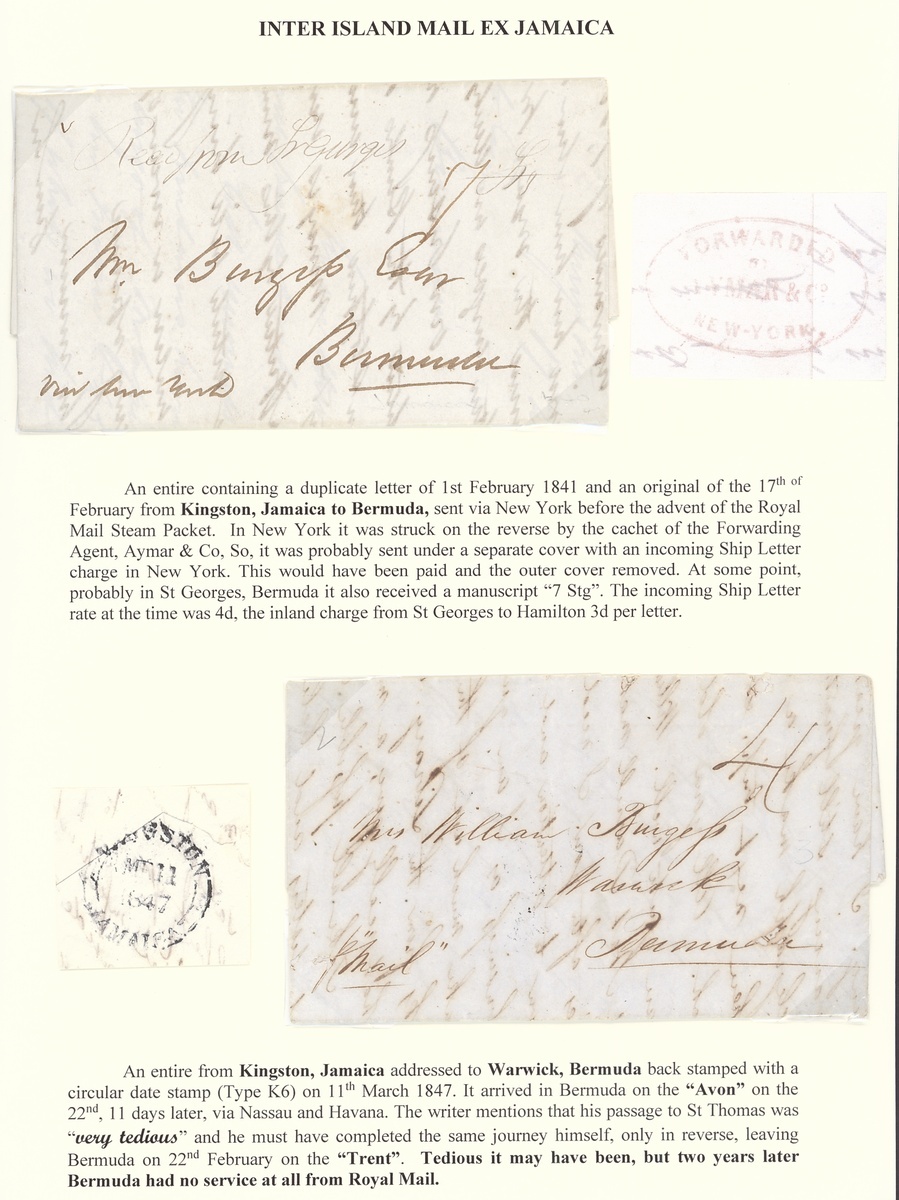 INTER ISLAND MAIL EX JAMAICA
Recd from St Georges
7 Stg
Wm Burgess Esqr
Bermuda
via New York
FORWARDED
BY
AYMAR & Co
NEW-YORK
An entire containing a duplicate letter of 1st February 1841 and an original of the 17th of
February from Kingston, Jamaica to Bermuda, sent via New York before the advent of the Royal
Mail Steam Packet. In New York it was struck on the reverse by the cachet of the Forwarding
Agent, Aymar & Co, So, it was probably sent under a separate cover with an incoming Ship Letter
charge in New York. This would have been paid and the outer cover removed. At some point,
probably in St Georges, Bermuda it also received a manuscript “7 Stg”. The incoming Ship Letter
rate at the time was 4d, the inland charge from St Georges to Hamilton 3d per letter.
4
Mrs William Burgess
Warwick
Bermuda
"Mail"
KINGSTON
MR 11
1847
JAMAICA
An entire from Kingston, Jamaica addressed to Warwick, Bermuda back stamped with a
circular date stamp (Type K6) on 11th March 1847. It arrived in Bermuda on the “Avon” on the
22nd, 11 days later, via Nassau and Havana. The writer mentions that his passage to St Thomas was
“very tedious” and he must have completed the same journey himself, only in reverse, leaving
Bermuda on 22nd February on the “Trent”. Tedious it may have been, but two years later
Bermuda had no service at all from Royal Mail.